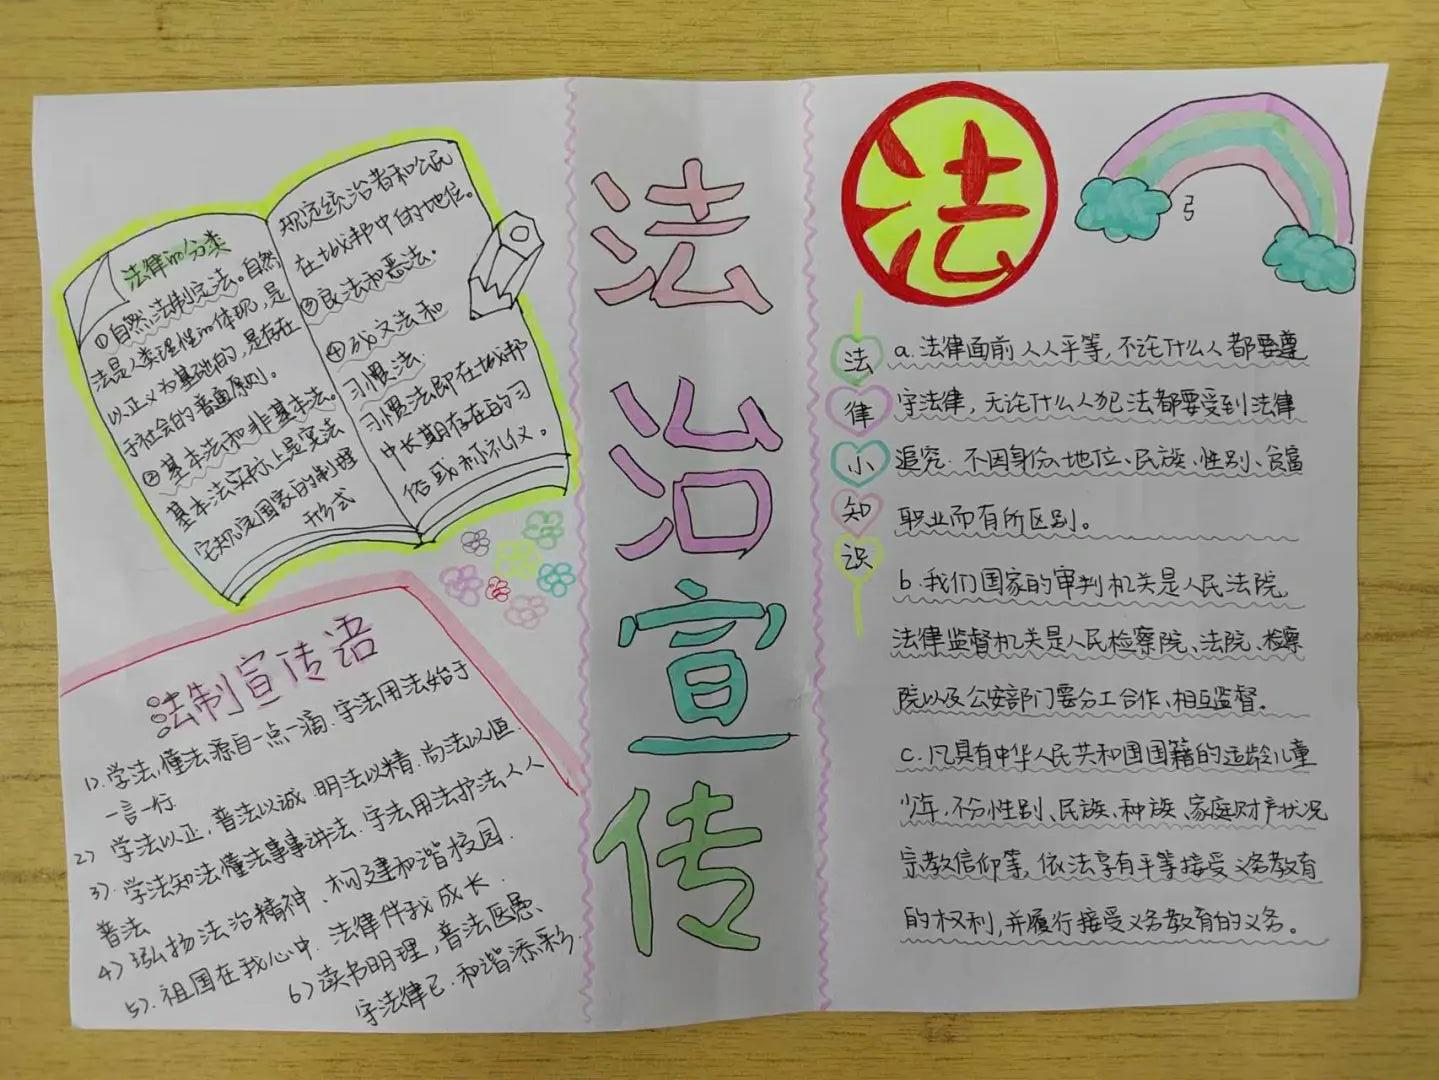 法律的分类
①自然法制定法。自然
法是人类理性的体现,是
以正义为基础的,是存在
于社会的普遍原则。
②基本法和非基本法。
基本法实际上是宪法
它规定国家的制理
形式
规范统治者和公民
在城邦中的地位。
③良法和恶法.
④成文法和
习惯法.
习惯法即在城邦
中长期存在的习
俗或称礼仪。
法制宣传语
1). 学法,懂法源自一点一滴.守法用法始于
一言一行
2) 学法以正,普法以诚.明法以精.尚法以恒.
3). 学法知法懂法事事讲法.守法用法护法人人
普法
4) 弘扬法治精神、构建和谐校园.
5). 祖国在我心中.法律伴我成长.
6) 读书明理,普法医愚、
守法律己.和谐添彩.
法
治
宣
传
法
法
律
小
知
识
a. 法律面前人人平等,不论什么人都要遵
守法律,无论什么人犯法都要受到法律
追究.不因身份、地位、民族、性别、贫富
职业而有所区别。
b. 我们国家的审判机关是人民法院,
法律监督机关是人民检察院、法院、检察
院以及公安部门要分工合作、相互监督.
c. 凡具有中华人民共和国国籍的适龄儿童
少年,不分性别、民族、种族、家庭财产状况
宗教信仰等,依法享有平等接受义务教育
的权利,并履行接受义务教育的义务。